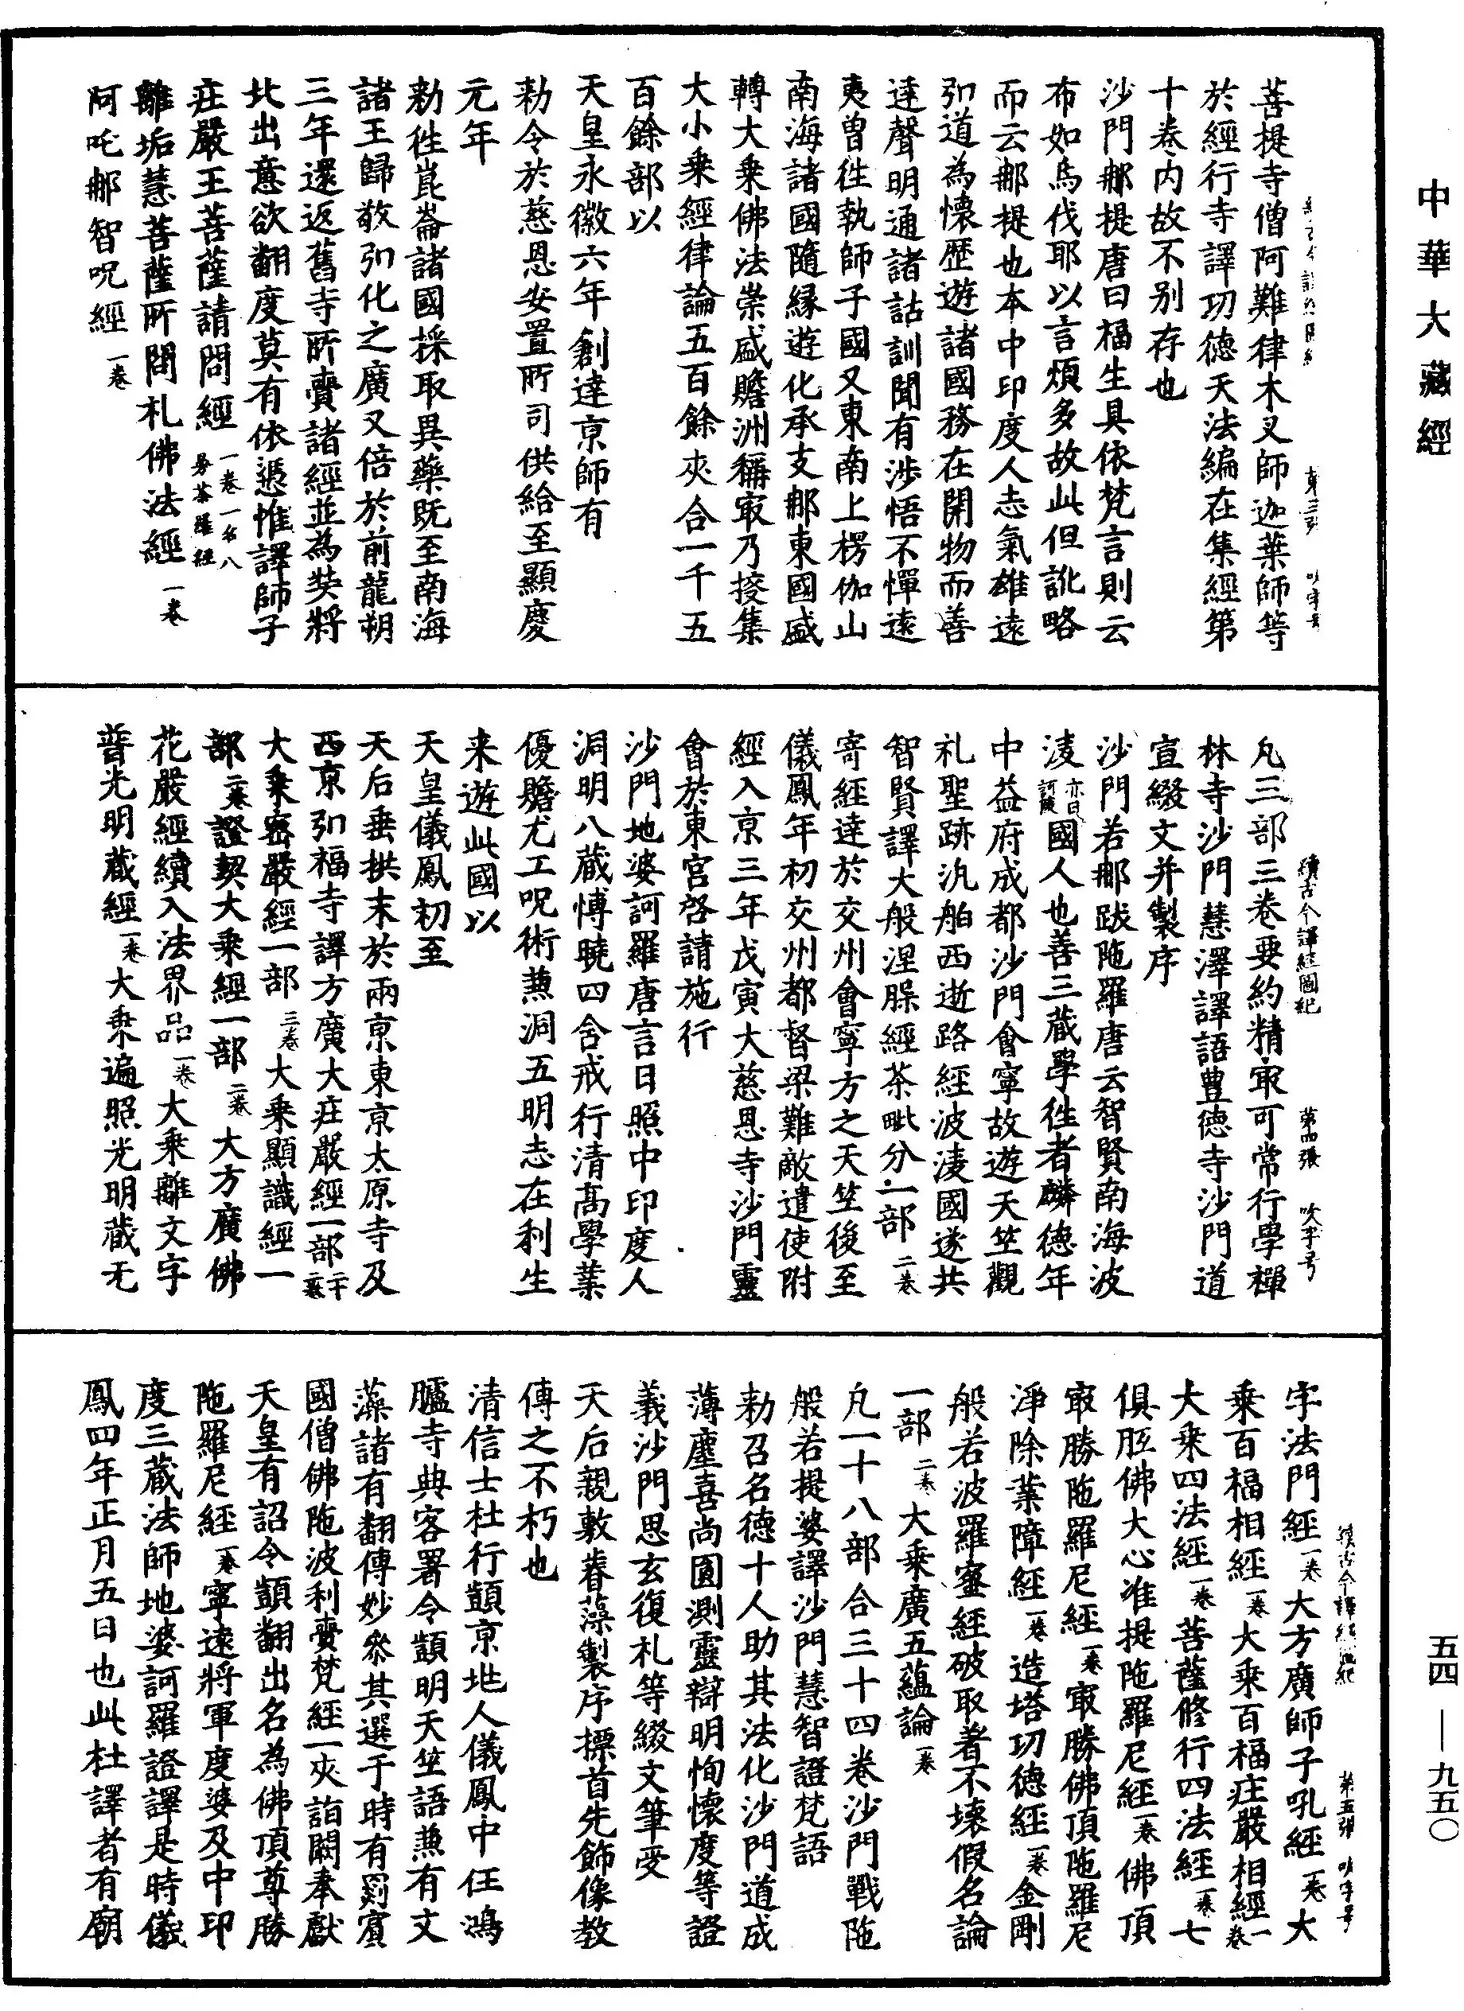 中華大藏經
菩提寺僧阿難律木叉師迦葉師等
於經行寺譯功德天法編在集經第
十卷内故不别存也
沙門那提唐曰福生具依梵言則云
布如烏伐耶以言煩多故此但訛略
而云那提也本中印度人志氣雄遠
弘道為懷歷遊諸國務在開物而善
達聲明通諸詁訓聞有涉悟不憚遠
夷曽徃執師子國又東南上楞伽山
南海諸國隨縁遊化承支那東國盛
轉大乗佛法崇盛贍洲稱㝡乃搜集
大小乗經律論五百餘夾合一千五
百餘部以
天皇永徽六年創達京師有
勑令於慈恩安置所司供給至顯慶
元年
勑徃崑崙諸國採取異藥既至南海
諸王歸敬弘化之廣又倍於前龍朔
三年還返舊寺所賷諸經並為奘將
北出意欲翻度莫有依憑惟譯師子
莊嚴王菩薩請問經 一卷一名八曼荼羅經
離垢慧菩薩所問札佛法經 一卷
阿吒那智呪經 一卷
續古今譯經圖紀 第四張 吹字号
凡三部三卷要約精㝡可常行學禪
林寺沙門慧澤譯語豊德寺沙門道
宣綴文并製序
沙門若那跋陁羅唐云智賢南海波
淩 亦曰訶陵 國人也善三藏學徃者麟德年
中益府成都沙門會寧故遊天竺觀
礼聖跡汎舶西逝路經波淩國遂共
智賢譯大般涅槃經茶毗分一部 二卷
寄經達於交州會寧方之天竺後至
儀鳳年初交州都督梁難敵遣使附
經入京三年戊寅大慈恩寺沙門靈
會於東宮啓請施行
沙門地婆訶羅唐言日照中印度人
洞明八藏愽曉四含戒行清髙學業
優贍尤工呪術兼洞五明志在利生
来遊此國以
天皇儀鳳初至
天后垂拱末於兩京東京太原寺及
西京弘福寺譯方廣大莊嚴經一部 十二卷
大乗密嚴經一部 三卷 大乗顯識經一
部 二卷 證契大乗經一部 二卷 大方廣佛
花嚴經續入法界品 一卷 大乗離文字
普光明藏經 一卷 大乗遍照光明藏无
續古今譯經圖紀 第五張 吹字号
字法門經 一卷 大方廣師子吼經 一卷 大
乗百福相經 一卷 大乗百福莊嚴相經 一卷
大乗四法經 一卷 菩薩修行四法經 一卷 七
俱胝佛大心准提陁羅尼經 一卷 佛頂
㝡勝陁羅尼經 一卷 㝡勝佛頂陁羅尼
淨除業障經 一卷 造塔功德經 一卷 金剛
般若波羅蜜經破取著不壊假名論
一部 二卷 大乗廣五藴論 一卷
凡一十八部合三十四卷沙門戰陁
般若提婆譯沙門慧智證梵語
勑召名德十人助其法化沙門道成
薄塵喜尚圓測靈辯明恂懷度等證
義沙門思玄復札等綴文筆受
天后親敷睿藻製序摽首先飾像教
傳之不朽也
清信士杜行顗京地人儀鳳中任鴻
臚寺典客署令顗明天竺語兼有文
藻諸有翻傳妙叅其選于時有罽賓
國僧佛陁波利賷梵經一夾詣闕奉獻
天皇有詔令顗翻出名為佛頂尊勝
陁羅尼經 一卷 寧遠將軍度婆及中印
度三藏法師地婆訶羅證譯是時儀
鳳四年正月五日也此杜譯者有廟
五四—九五〇